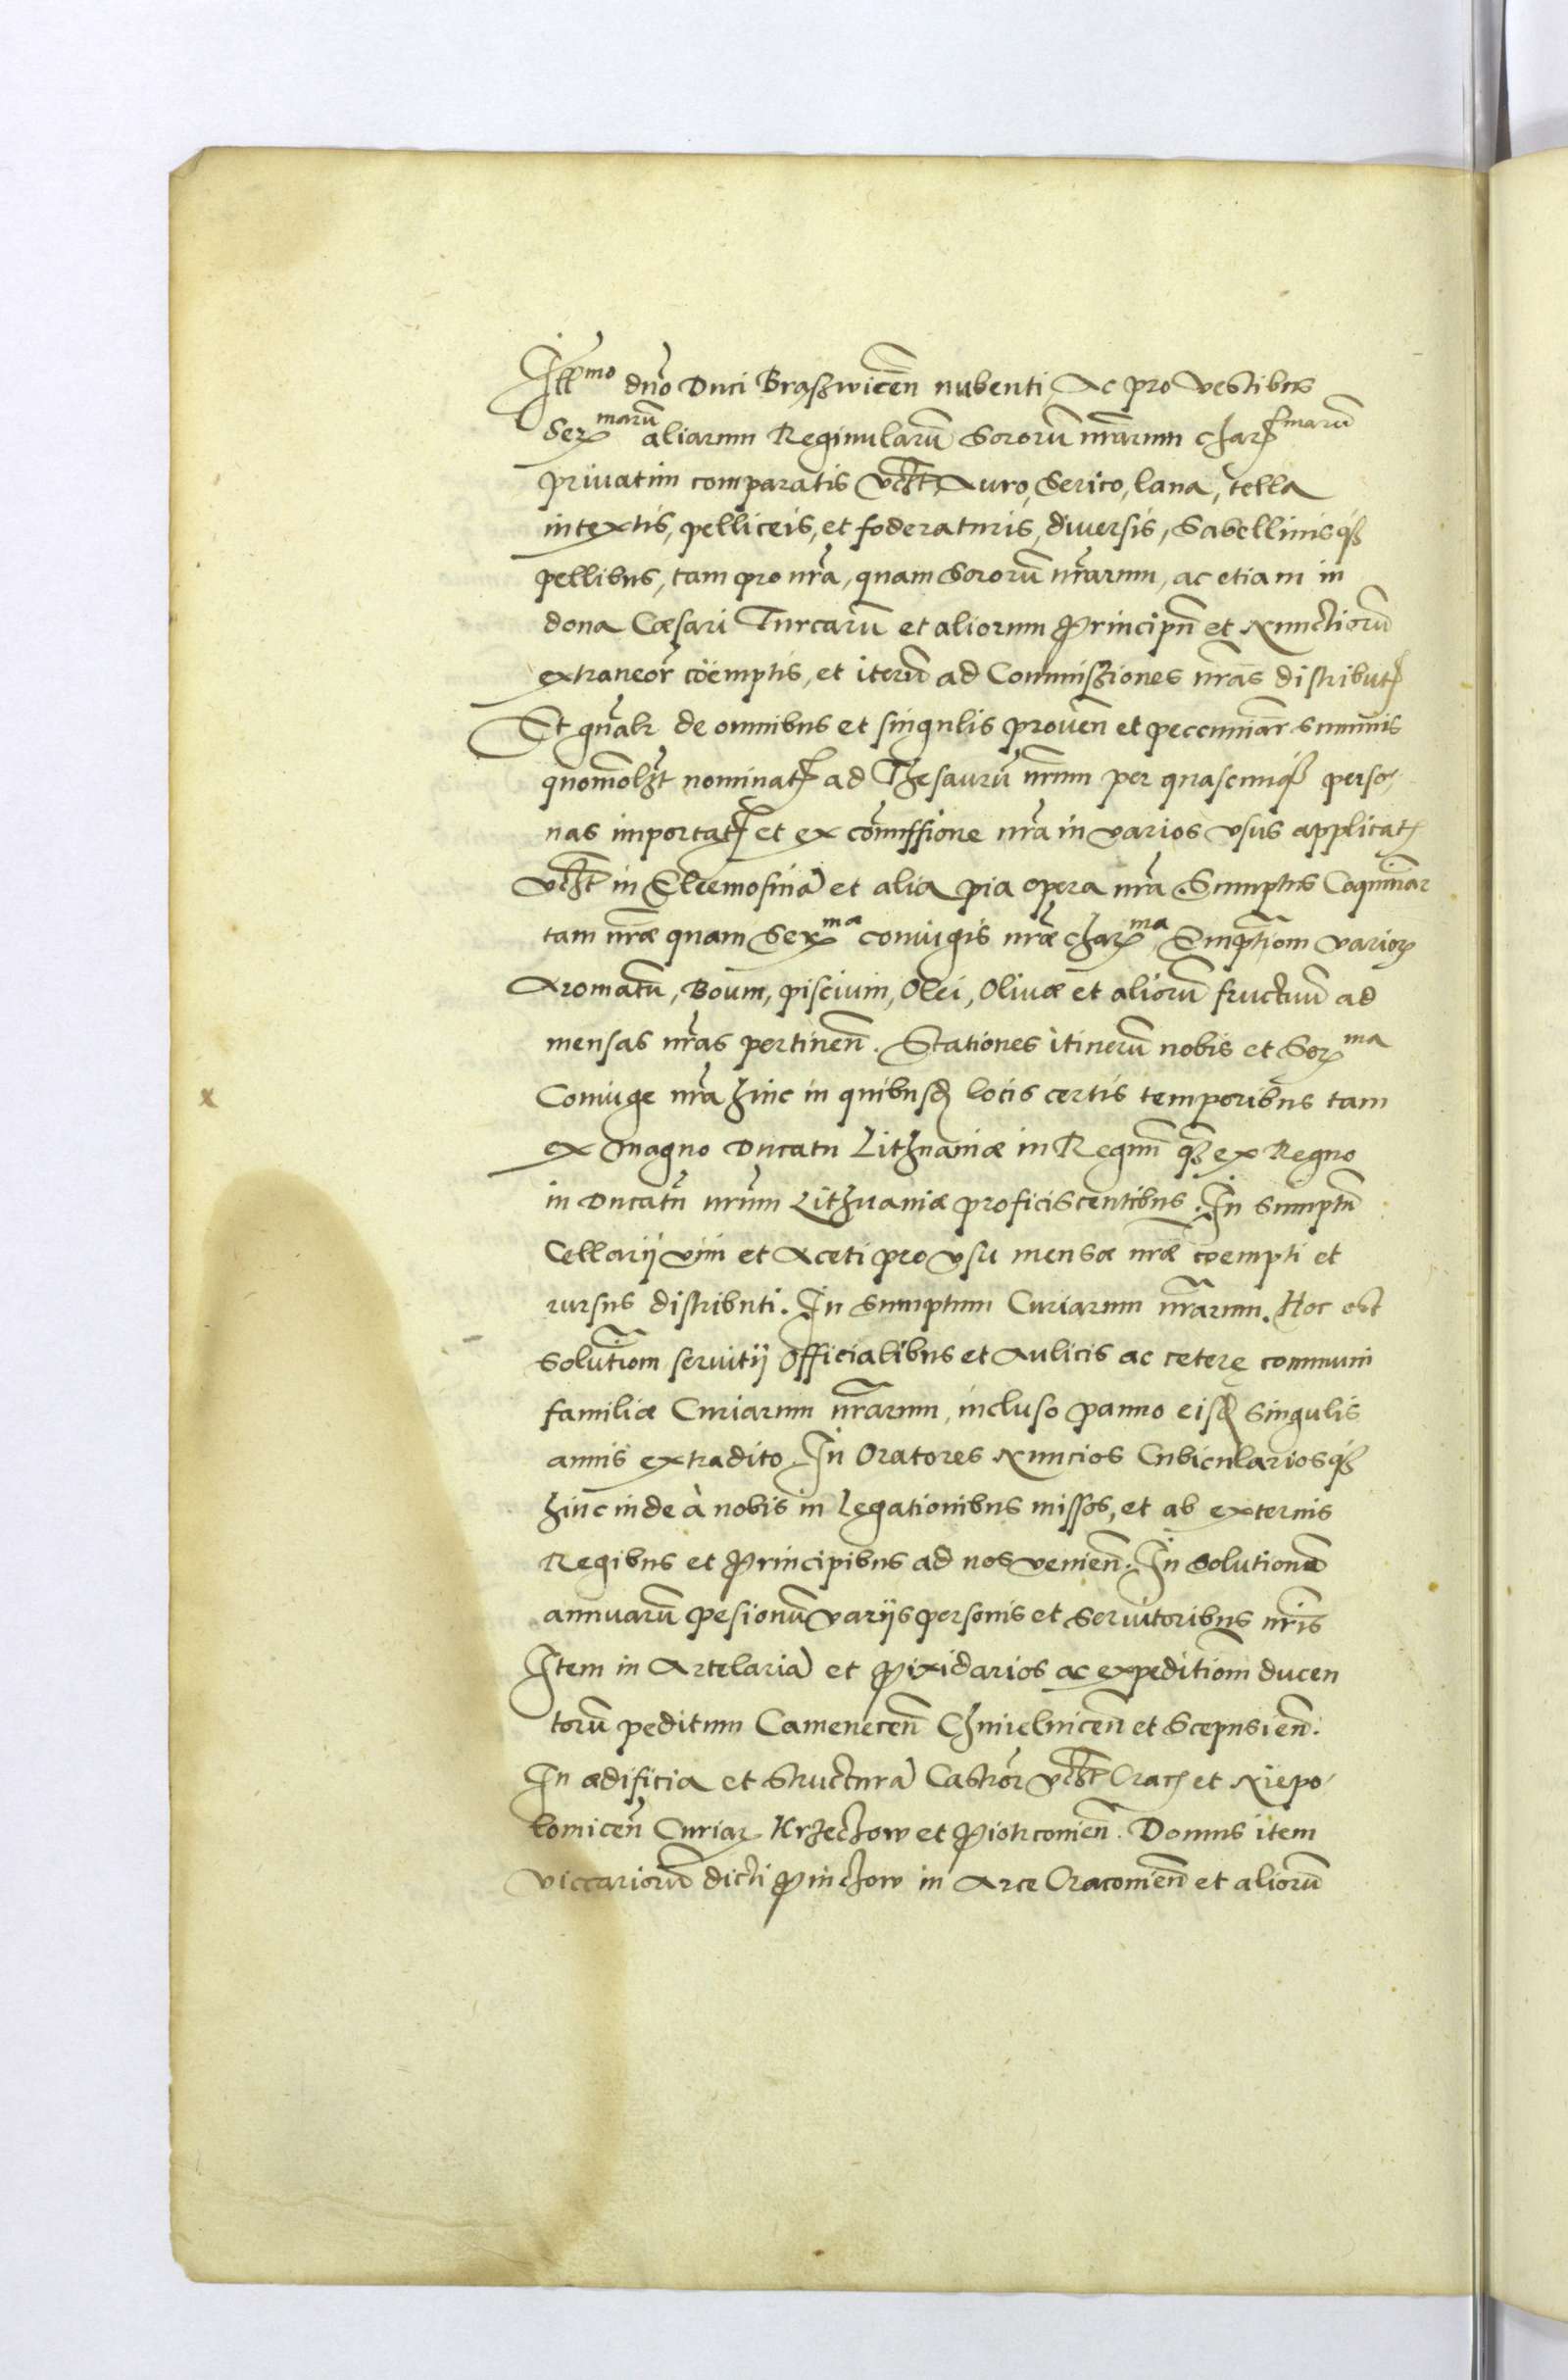 Ill͞mo dño Duci Braßwicen͂ nubenti, Ac pro vestibus
Ser͂marū aliarum Reginularū Sororū nr̃arum char͂marū
privatim comparatis vcz̃t, Auro, Serico, lana, tella
intextis, pelliceis, et foderaturis, diversis, Sabellinisq3
pellibus, tam pro nr̃a, quam Sororū nr̃arum, ac etiam in
dona Cæsari Turcarū et aliorum Principū et Nunctiorū
extraneor͂ cöemptis, et iterū ad Commissiones nr̃as distribut͂
Et gn̄alr de omnibus et singulis proven͂ et pecuniar͂ summis
quomolz̃t nominat͂ ad Thesaurū nr̃um per quascunq3 perso-
nas importat͂ et ex com̃issione nr̃a in varios vsus applicat͂
vcz̃t in Eleemosinā et alia pia opera nr̃a Sumptus Coquinar͂
tam nr̃æ quam Ser͂ma coniugis nr̃æ char͂ma, Emptiom͂ varior͂
Aromatū, Boum, piscium, Olei, Olivæ et aliorū fructuū ad
mensas nr̃as pertinen͂. Stationes itinerū nobis et Ser͂ma
Coniuge nr̃a hinc in quibusd͂ locis certis temporibus tam
ex Magno Ducatu Lithuaniæ in Regnū q͂3 ex Regno
in Ducatū nr̃um Lithuaniæ proficiscentibus. In sumptū
Cellarij vini et Aceti pro vsu mensæ nr̃æ coempti et
rursus distributi. In Sumptum Curiarum nr̃arum. Hoc est
Solutiom͂ servitij Officialibus et Aulicis ac ceterę communi
familiæ Curiarum nr̃arum, incluso panno eisd͂ singulis
annis extradito. In Oratores Nuncios Cubiculariosq3
hinc inde à nobis in legationibus missos, et ab externis
Regibus et Principibus ad nos venien͂. In Solutionē
annuarū pesionū varijs personis et servitoribus nr̃is
Item in Artelariā et Pixidarios ac expeditiom͂ ducen
torū peditum Camenecen͂ Chmielnicen͂ et Scepusien͂.
In ædificia et Structurā Castror͂ vcz̃t Crac͂ et Niepo-
lomicen͂ Curiar͂ Krzeczow et Piotrcovien͂. Domus item
viccariorū dicti Pinczow in Arce Cracovien͂ et aliorū